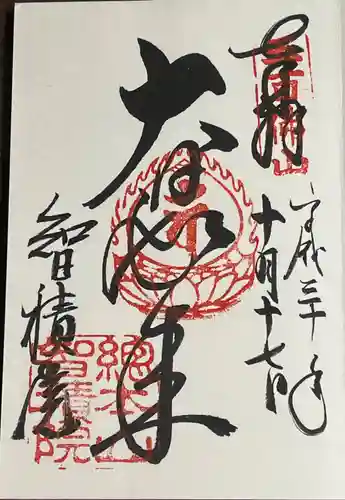 奉拝
平成三十年
十月十七日
大日如来
智積院
總本山
智積院